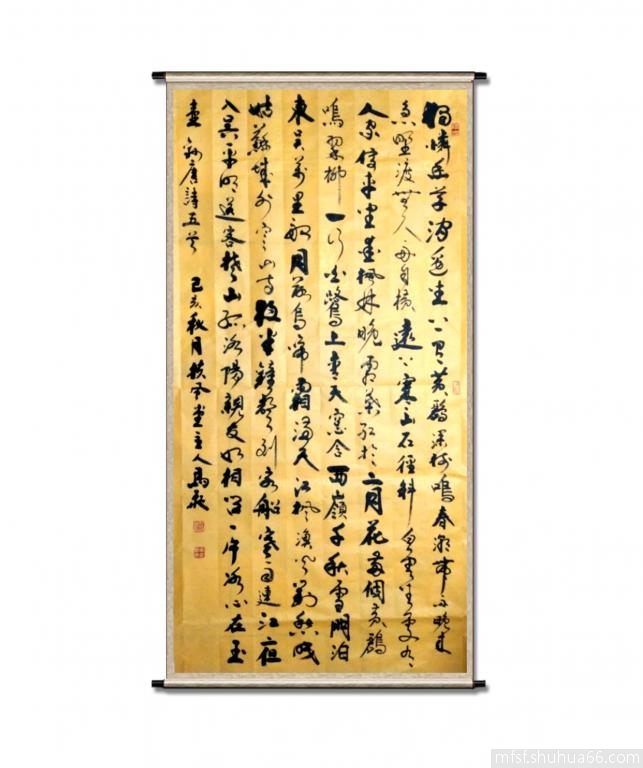 獨憐幽草澗邊生上有黃鸝深樹鳴春潮帶雨晚來
急野渡無人舟自橫遠上寒山石徑斜白雲生處有
人家停車坐愛楓林晚霜葉紅於二月花兩個黃鸝
鳴翠柳一行白鷺上青天窗含西嶺千秋雪門泊
東吳萬里船月落烏啼霜滿天江楓漁火對愁眠
姑蘇城外寒山寺夜半鐘聲到客船寒雨連江夜
入吳平明送客楚山孤洛陽親友如相問一片冰心在玉
壺 錄唐詩五首 己亥秋月扶風堂主人馬
mfsf.shuhua66.com